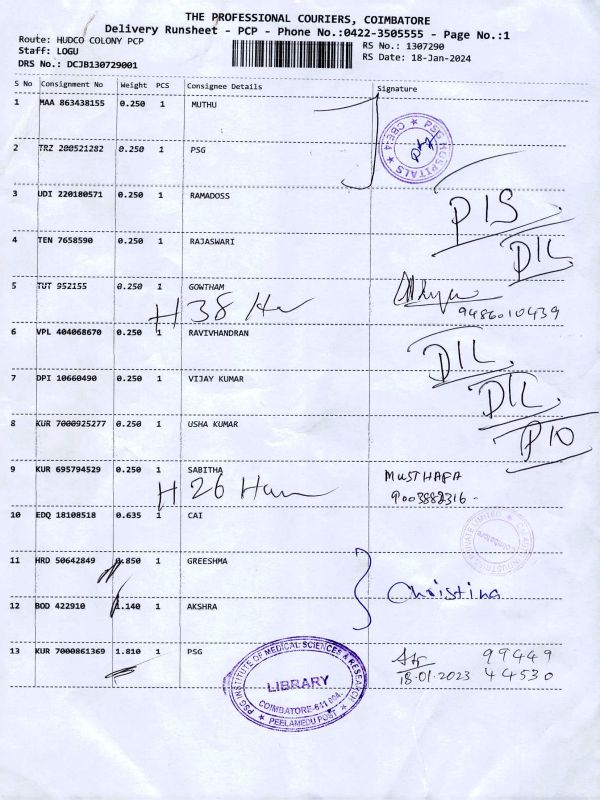 THE PROFESSIONAL COURIERS, COIMBATORE
Delivery Runsheet - PCP - Phone No.:0422-3505555 - Page No.:1
Route: HUDCO COLONY PCP
Staff: LOGU
DRS No.: DCJB130729001
RS No.: 1307290
RS Date: 18-Jan-2024
S No Consignment No Weight PCS Consignee Details Signature
1 MAA 863438155 0.250 1 MUTHU
PSG HOSPITALS ★ CBE-4 ★
2 TRZ 200521282 0.250 1 PSG
3 UDI 220180571 0.250 1 RAMADOSS
D15
4 TEN 7658590 0.250 1 RAJASWARI
DIL
5 TUT 952155 0.250 1 GOWTHAM
H 38
9486010439
6 VPL 404068670 0.250 1 RAVIVHANDRAN
DIL
7 DPI 10660490 0.250 1 VIJAY KUMAR
DIL
8 KUR 7000925277 0.250 1 USHA KUMAR
P10
9 KUR 695794529 0.250 1 SABITHA
H 26
MUSTHAFA
9003882316-
10 EDQ 18108518 0.635 1 CAI
Coimbatore
11 HRD 50642849 0.850 1 GREESHMA
Christina
12 BOD 422910 1.140 1 AKSHRA
13 KUR 7000861369 1.810 1 PSG
PSG INSTITUTE OF MEDICAL SCIENCES & RESEARCH
LIBRARY
COIMBATORE-641 004.
★ PEELAMEDU POST ★
18.01.2023
99449
44530